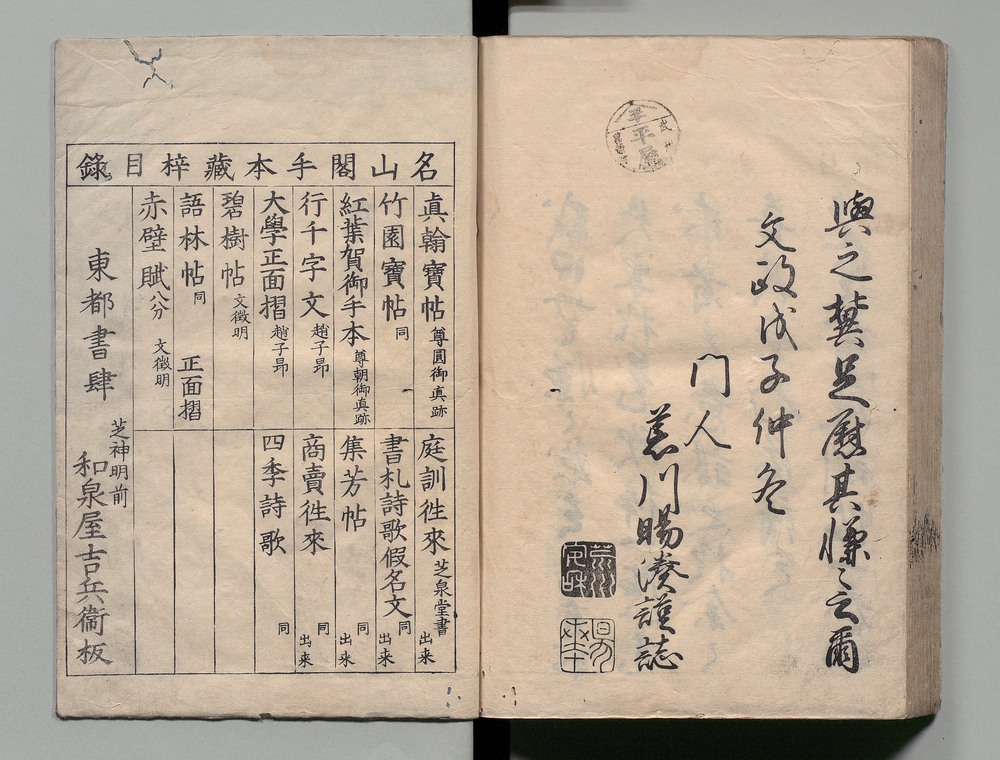 與之
足慰其
云爾
文政戊子仲冬
門人
川暘
謹誌
名山閣手本藏梓目錄
真翰寶帖 尊圓御真跡
竹園寶帖 同
紅葉賀御手本 尊朝御真跡
行千字文 趙子昻
大學正面摺 趙子昻
碧樹帖 文徵明
語林帖 同 正面摺
赤壁賦 八分 文徵明
庭訓徃來 芝泉堂書 出来
書札詩歌假名文 同 出来
集芳帖 同 出来
商賣徃來 同 出来
四季詩歌 同
東都書肆 芝神明前 和泉屋吉兵衞板